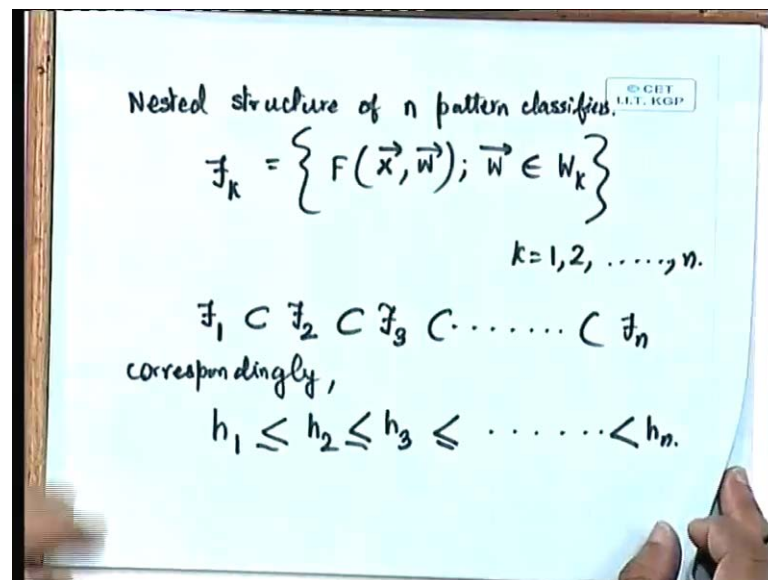 Nested structure of n pattern classifiers.
© CET
I.I.T. KGP
ℱₖ = { F(x⃗, w⃗); w⃗ ∈ Wₖ }
k = 1, 2, ....., n.
ℱ₁ ⊂ ℱ₂ ⊂ ℱ₃ ⊂ ....... ⊂ ℱₙ
correspondingly,
h₁ ≤ h₂ ≤ h₃ ≤ ...... < hₙ.